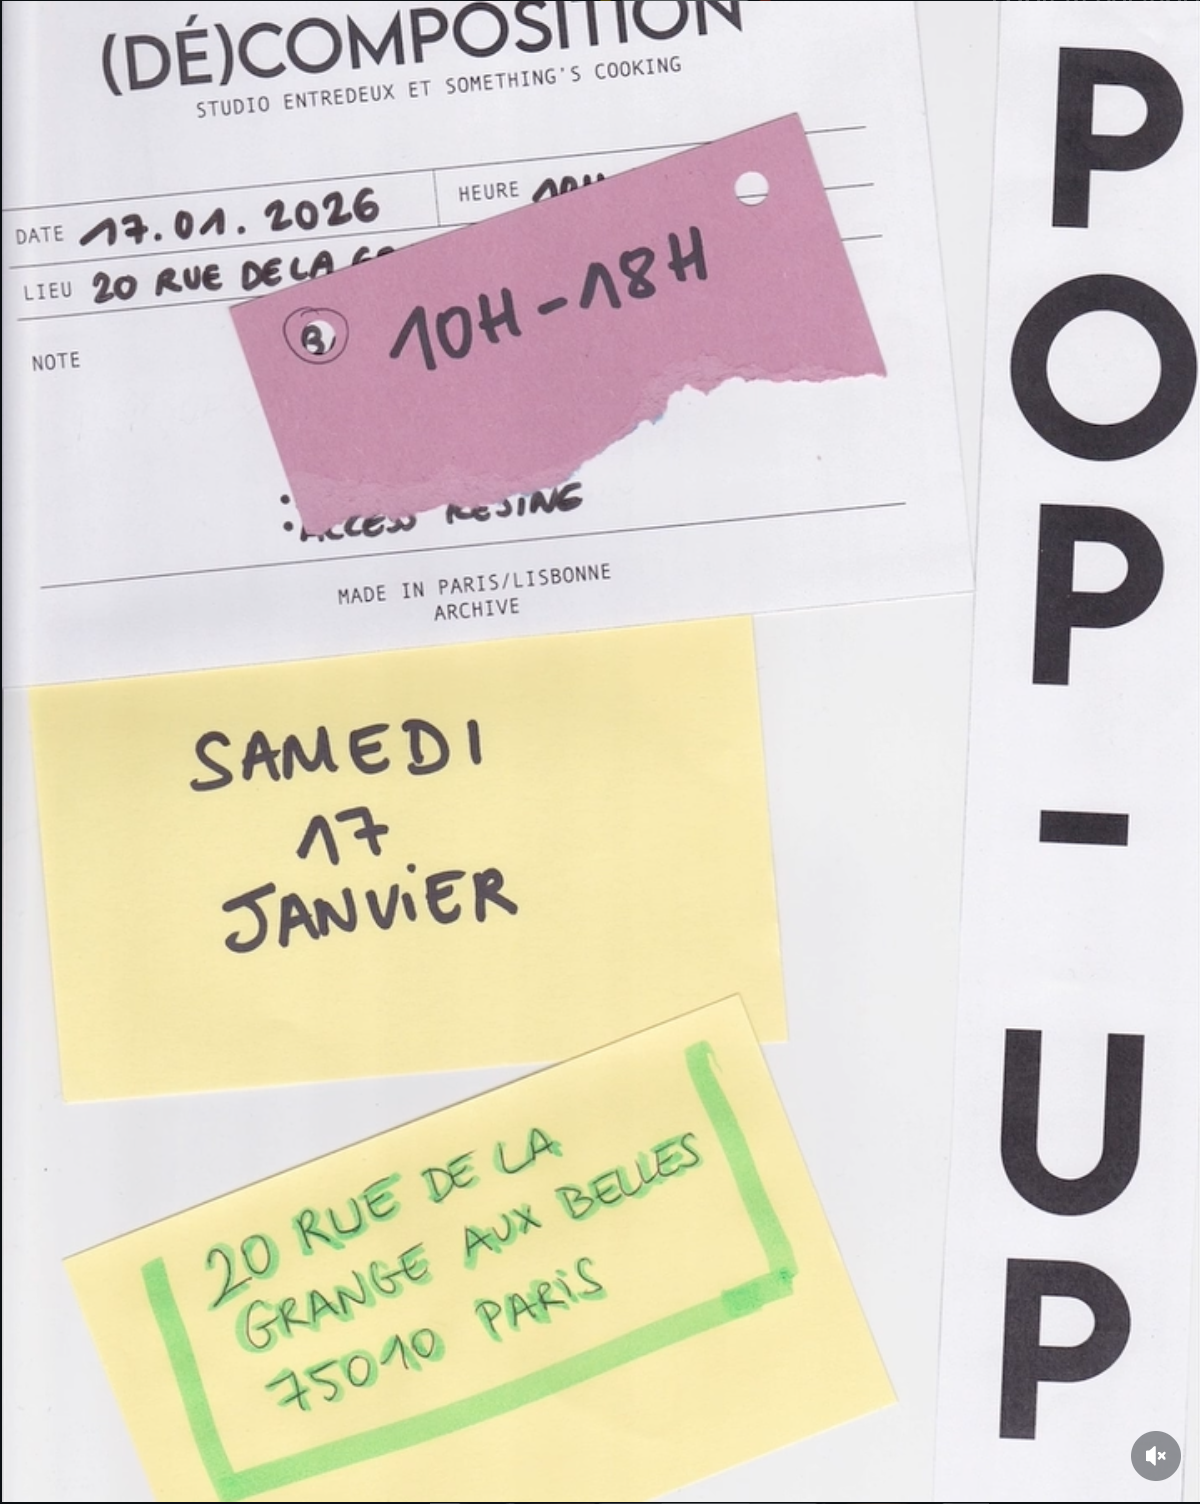 (DÉ)COMPOSITION
STUDIO ENTREDEUX ET SOMETHING'S COOKING
DATE 17.01.2026
HEURE 10H
LIEU 20 RUE DE LA
10H-18H
NOTE
ACCESS RESINE
MADE IN PARIS/LISBONNE
ARCHIVE
SAMEDI
17
JANVIER
20 RUE DE LA
GRANGE AUX BELLES
75010 PARIS
POP-UP